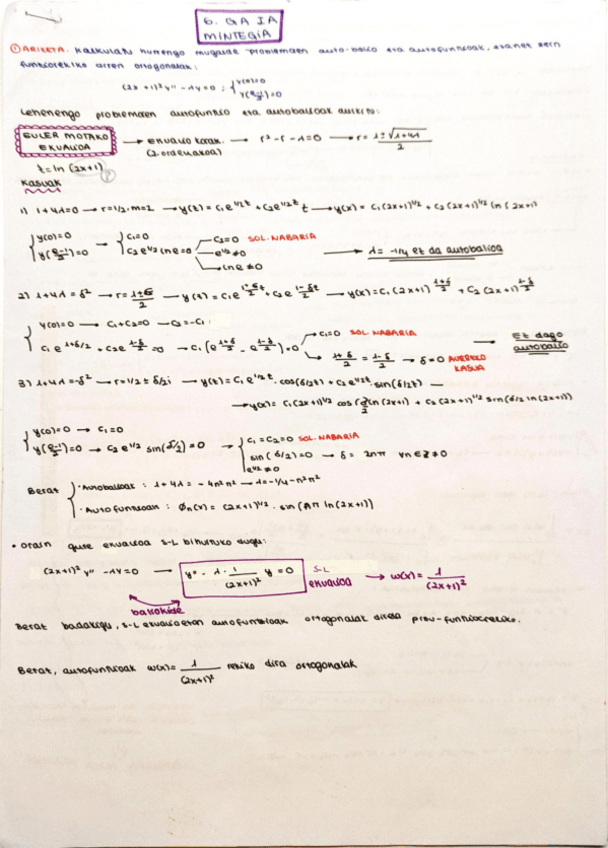 6. GAIA
MINTEGIA
① ARIKETA. Kalkulatu hurrengo mugalde problemaen auto-balio eta autofuntzioak, esanez zein
funtziorekiko diren ortogonalak:
(2x+1)² y'' - λy = 0 ; { y(0)=0
y((e-1)/2)=0
Lehenengo problemaen autofuntzio eta autobalioak aurkitu:
EULER MOTAKO
EKUAZIOA
→ ekuazio karak. → r² - r - λ = 0 → r = (1±√(1+4λ))/2
(2. ordenakoa)
t = ln (2x+1)
KASUAK
1) 1+4λ=0 → r=1/2, m=2 → y(t) = C₁e^(1/2 t) + C₂e^(1/2 t) t → y(x) = C₁(2x+1)^(1/2) + C₂(2x+1)^(1/2) ln(2x+1)
{ y(0)=0 → { C₁=0
y((e-1)/2)=0 C₂e^(1/2) ln e=0 → C₂=0 SOL. NABARIA
→ e^(1/2) ≠0
→ ln e ≠0
→ λ = -1/4 ez da autobalioa
2) 1+4λ = δ² → r = (1±δ)/2 → y(t) = C₁e^((1+δ)/2 t) + C₂e^((1-δ)/2 t) → y(x) = C₁(2x+1)^((1+δ)/2) + C₂(2x+1)^((1-δ)/2)
{ y(0)=0 → C₁+C₂=0 → C₂=-C₁
C₁e^((1+δ)/2) + C₂e^((1-δ)/2) = 0 → C₁(e^((1+δ)/2) - e^((1-δ)/2))=0 → C₁=0 SOL. NABARIA
→ (1+δ)/2 = (1-δ)/2 → δ=0 AURREKO KASUA
→ Ez dago autobalio
3) 1+4λ = -δ² → r=1/2 ± δ/2 i → y(t) = C₁e^(1/2 t) · cos(δ/2 t) + C₂e^(1/2 t) · sin(δ/2 t) →
→ y(x) = C₁(2x+1)^(1/2) cos(δ/2 ln(2x+1)) + C₂(2x+1)^(1/2) sin(δ/2 ln(2x+1))
{ y(0)=0 → C₁=0
y((e-1)/2)=0 → C₂e^(1/2) sin(δ/2)=0 → { C₁=C₂=0 SOL. NABARIA
sin(δ/2)=0 → δ = 2nπ ∀n∈Z≠0
e^(1/2) ≠0
Beraz { · Autobalioak : 1+4λ = -4n²π² → λ=-1/4-n²π²
· Autofuntzioak : Øn(x) = (2x+1)^(1/2) · sin(nπ ln(2x+1))
• Orain gure ekuazioa S-L bihurtuko dugu:
(2x+1)² y'' - λy = 0 → y'' - λ · 1/(2x+1)² y = 0 S-L ekuazioa → w(x) = 1/(2x+1)²
baliokide
Beraz badakigu, S-L ekuazioetan autofuntzioak ortogonalak direla pisu-funtzioarekiko.
Beraz, autofuntzioak w(x) = 1/(2x+1)² rekiko dira ortogonalak